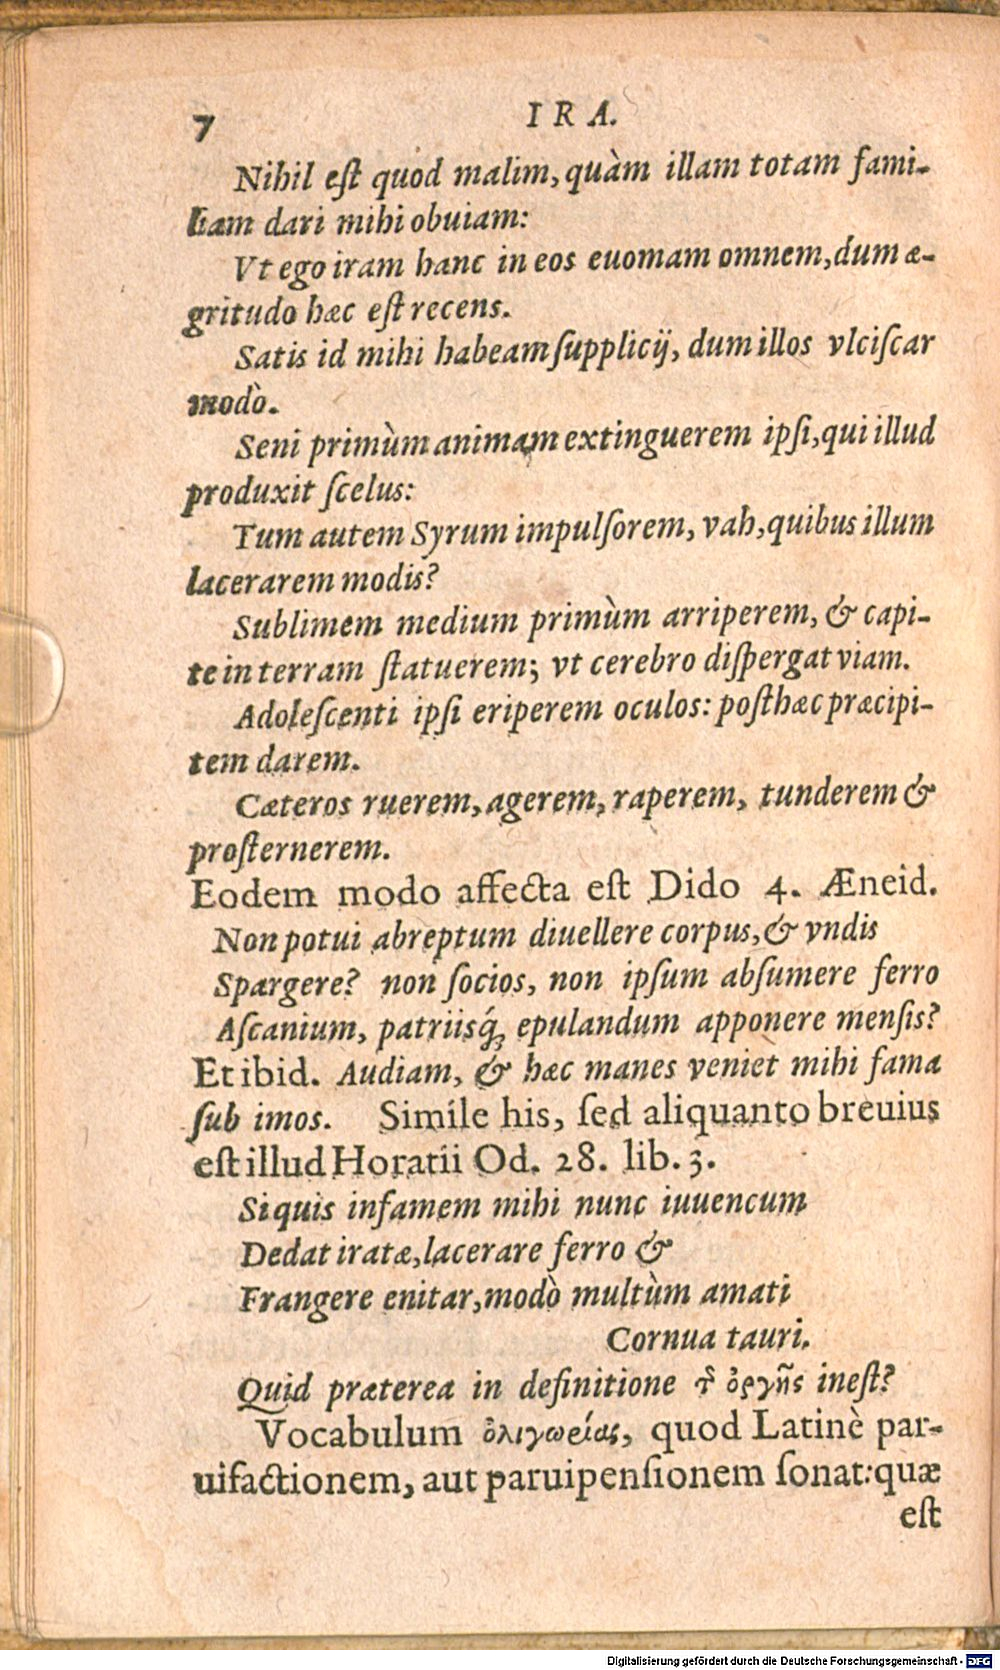 7 IRA.
Nihil eſt quod malim, quàm illam totam fami-
liam dari mihi obuiam:
Vt ego iram hanc in eos euomam omnem, dum æ-
gritudo hæc eſt recens.
Satis id mihi habeam ſupplicij, dum illos vlciſcar
modò.
Seni primùm animam extinguerem ipſi, qui illud
produxit ſcelus:
Tum autem Syrum impulſorem, vah, quibus illum
lacerarem modis?
Sublimem medium primùm arriperem, & capi-
te in terram ſtatuerem; vt cerebro diſpergat viam.
Adoleſcenti ipſi eriperem oculos: poſthæc præcipi-
tem darem.
Cæteros ruerem, agerem, raperem, tunderem &
proſternerem.
Eodem modo affecta eſt Dido 4. Æneid.
Non potui abreptum diuellere corpus, & vndis
Spargere? non ſocios, non ipſum abſumere ferro
Aſcanium, patriisq́ꝫ epulandum apponere menſis?
Et ibid. Audiam, & hæc manes veniet mihi fama
ſub imos. Simile his, ſed aliquanto breuius
eſt illud Horatii Od. 28. lib. 3.
Si quis infamem mihi nunc iuuencum
Dedat iratæ, lacerare ferro &
Frangere enitar, modò multùm amati
Cornua tauri.
Quid præterea in definitione τ͂ ὀργῆς ineſt?
Vocabulum ὀλιγωρίας, quod Latinè par-
uifactionem, aut paruipenſionem ſonat: quæ
eſt
Digitalisierung gefördert durch die Deutsche Forschungsgemeinschaft - DFG